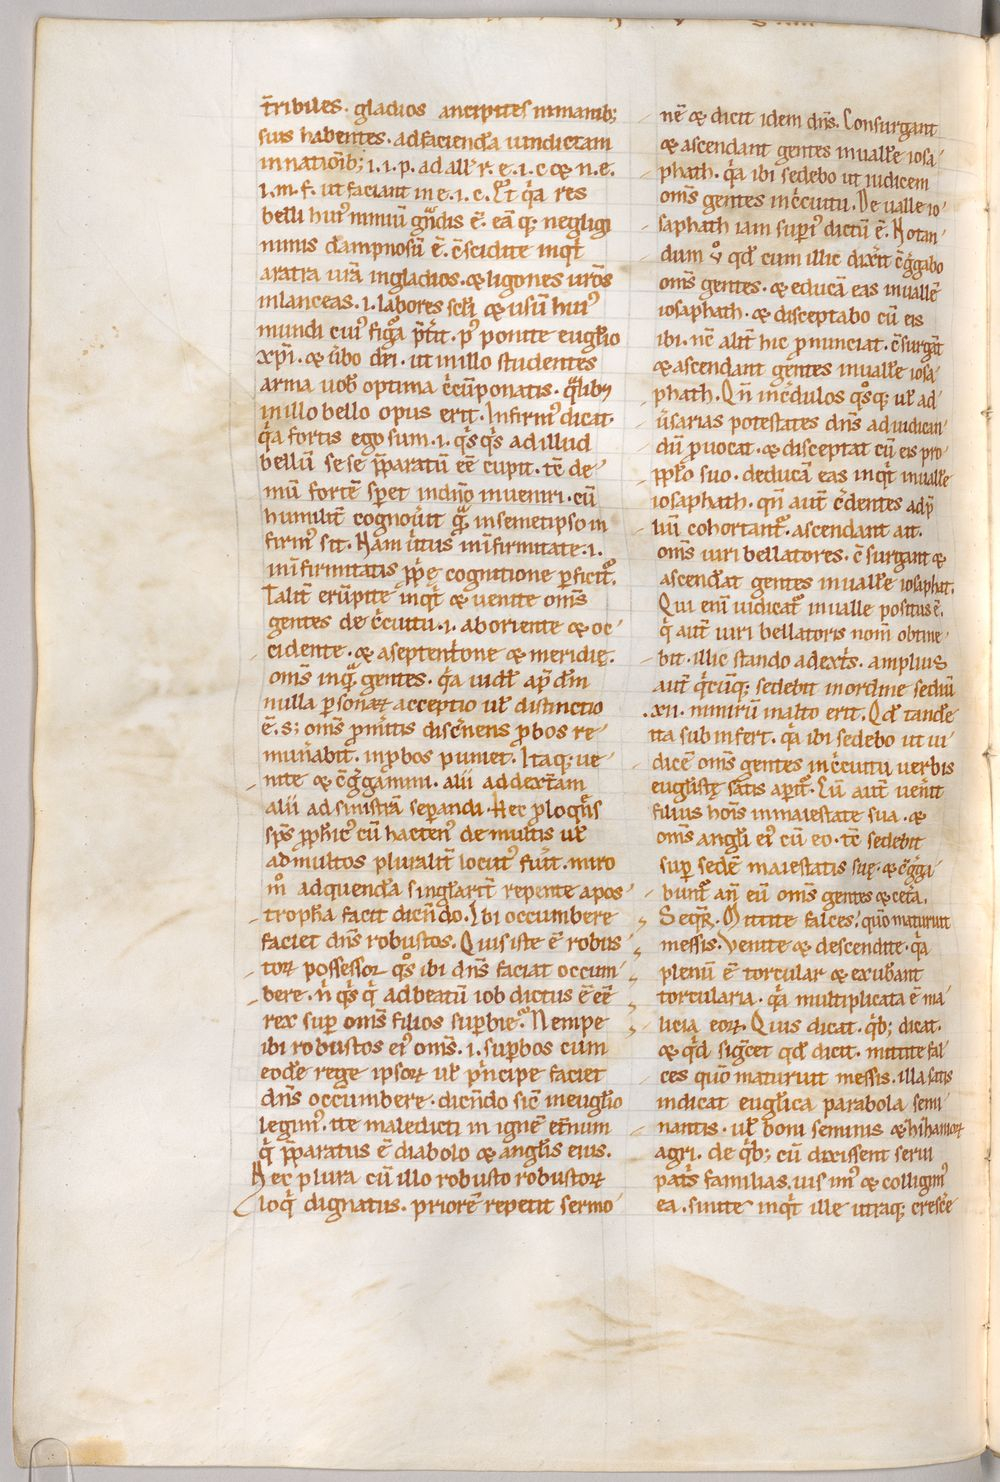 t̄ribiles. gladios ancipites in manib;
suis habentes. ad faciend̄a uindictam
in nationib; i. i. p. ad all' r. e. i. c ⁊ n. e.
i. m. f. ut faciant in e. i. c. Et q̄a res
belli hui' nimiū gndis ē. eā q; negligi
nimis dampnosū ē. c̄scidite inqt
aratra urā in gladios. ⁊ ligones urōs
in lanceas. i. labores scłi ⁊ usū hui'
mundi cui' figa p̄tit. p' ponite eugłio
xp̄i. ⁊ ūbo dei. ut in illo studentes
arma uob optima c̄cūponatis. qlib;
in illo bello opus erit. Infirm' dicat.
q̄a fortis ego sum. i. qsqs ad illud
bellū se se p̄paratū ēē cupit. tē de
mū fortē speret
inueniri. cū
humilit̄ cognoūit q̄ in semetipso in
firm' sit. Nam uirtus in īfirmitate. i.
in īfirmitatis pp̄ę cognitione pficit.
Talit̄ erūpite inqt ⁊ uenite om̄s
gentes de c̄cuitu. i. ab oriente ⁊ oc
cidente. ⁊ a septentrione ⁊ meridię.
om̄s inq gentes. q̄a iud
ap̄ dm̄
nulla psonaꝝ acceptio uł distinctio
ē. s; om̄s pmittis disc̄nens pbos re
munabit. inpbos puniet. Itaq; ue
nite ⁊ c̄ggamini. alii ad dext̄am
alii ad sinistrā seperandi. Hec ploqns
sp̄s pphie' cū hacten' de multis uł
ad multos pluralit̄ locut' fuit. miro
m̊ ad quenda singłarit̄ repente apos
tropha facit dicn̄do. Ibi occumbere
faciet dn̄s robustos. Quis iste ē robus
toꝝ possessor qs̊ ibi dn̄s faciat occum
bere. n̄ qs q̄ ad beatū iob dictus ē ēē
rex sup om̄s filios supbie. Nempe
ibi robustos ei' om̄s. i. supbos cum
eod̄e rege ipsoꝝ uł p̄ncipe faciet
dn̄s occūmbere. dicn̄do sic̄ in eugłio
legim'. Ite maledicti in ignē et̄num
q̄ p̄paratus ē diabolo ⁊ angłis eius.
Hec plura cū illo robusto robustoꝝ
loq̄ dignatus. priorē repetit sermo
nē ⁊ dicit idem dn̄s. Consurgant
⁊ ascendant gentes in ualłe iosa
phath. q̄a ibi sedebo ut iudicem
om̄s gentes in c̄cuitu. De ualle io
saphath iam superi' dictū ē. Notan
dum v̊ qd cum illic dixit c̄ggabo
om̄s gentes. ⁊ educā eas in uallē
iosaphath. ⁊ disceptabo cū eis
ibi. nē alit̄ hic pnunciat. c̄surgat̄
⁊ ascendant gentes in ualłe iosa
phath. Qn̄ inc̄dulos qsq; uł ad
ūsarias potestates dn̄s ad iudican
dū puocat. ⁊ disceptat cū eis pro
ppło suo. deducā eas inqt in ualłe
iosaphath. qn̄ aut̄ c̄dentes ad p
liū cohortant̄. ascendant ait.
om̄s uiri bellatores. c̄surgant ⁊
ascend̄at gentes in ualłe iosaphat.
Qui eni iudicat̄ in ualle positus ē.
q̄ aut̄ uiri bellatoris nom̄ obtine
bit. illic stando a dext̄s. amplius
aut̄ qcūq; sedebit in ordine sediū
.xii. nimirū in alto erit. Qd tand̄e
ita subinfert. q̄a ibi sedebo ut iu
dicē om̄s gentes in c̄cuitu uerbis
eugłistę satis apit̄. Cū aut̄ uenit
filius hōis in maiestate sua. ⁊
om̄s angłi ei' cū eo. tē sedebit
sup sedē maiestatis suę. ⁊ c̄gga
bunt̄ an̄ eū om̄s gentes ⁊ ceta.
Seqr. Mittite falces. qūo maturuit
messis. Venite ⁊ descendite. q̄a
plenū ē torcular ⁊ exubant
torcularia. q̄a multiplicata ē ma
licia eoꝝ. Quis dicat. qb; dicat.
⁊ qd sigcet qd dicit. mittite fal
ces qūo maturuit messis. illa satis
indicat eugłica parabola semi
nantis. uł boni seminis ⁊
agri. de qb; cū dixissent serui
pat̄s familias. uis im' ⁊ colligim'
ea. sinite inqt ille utraq; cresc̄e